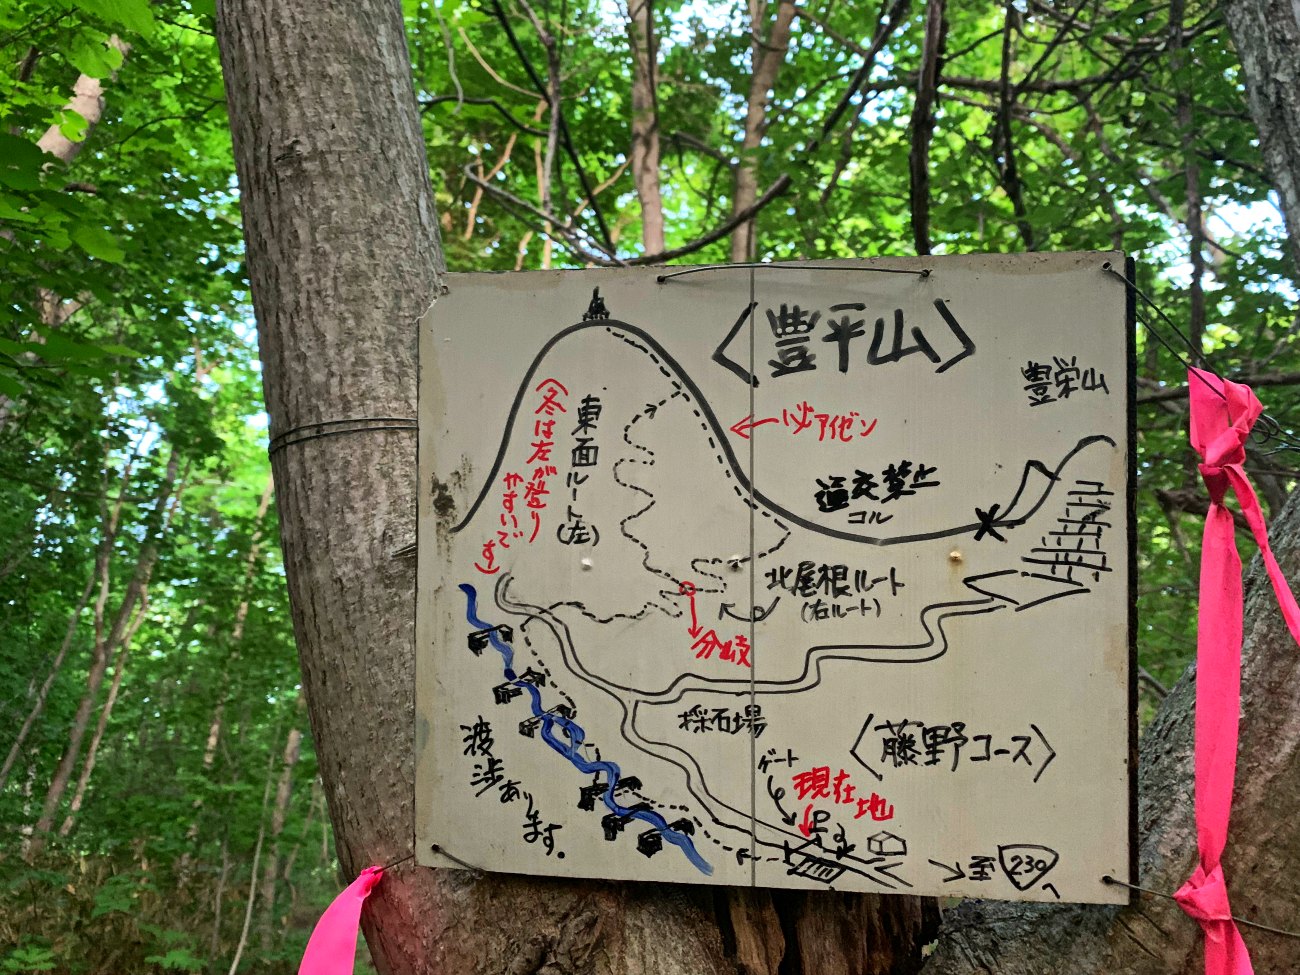 〈豊平山〉
豊栄山
必アイゼン
東面ルート(左)
(冬は左が登り
やすいです)
通交禁止
コル
北尾根ルート
(右ルート)
分岐
採石場
〈藤野コース〉
ゲート
現在地
渡渉あります。
P
至 230
へ